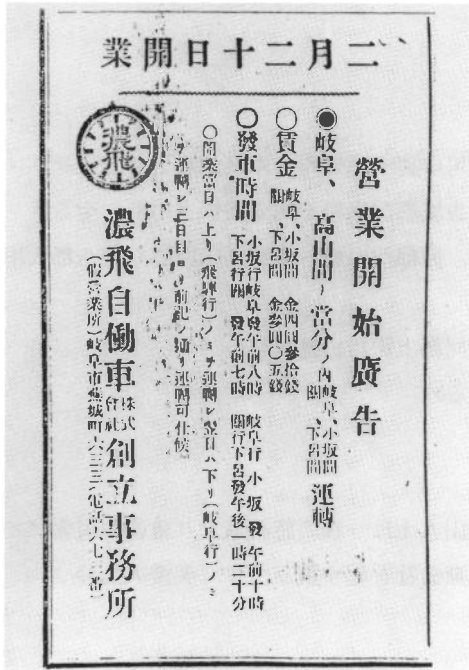 二月二十日開業
營業開始廣告
◉岐阜、高山間ノ當分ノ内岐阜、小坂間 關、下呂間 運轉
○賃金 岐阜、小坂間 金四圓參拾錢
關、下呂間 金參圓〇五錢
○發車時間 小坂行岐阜發午前八時 岐阜行小坂發午前十時
下呂行關發午前七時 關行下呂發午後 時三十分
○開業當日ハ上リ(飛驒行)ノミヲ運轉シ翌日ハ下リ(岐阜行)
ヲ運轉シ三日目ヨリ前記ノ通リ運轉可仕候
濃飛
濃飛自働車株式會社創立事務所
(假營業所)岐阜市蕪城町